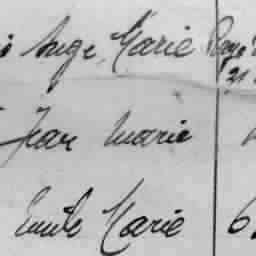 Ange Marie
21
Jean Marie
Emile Marie 6